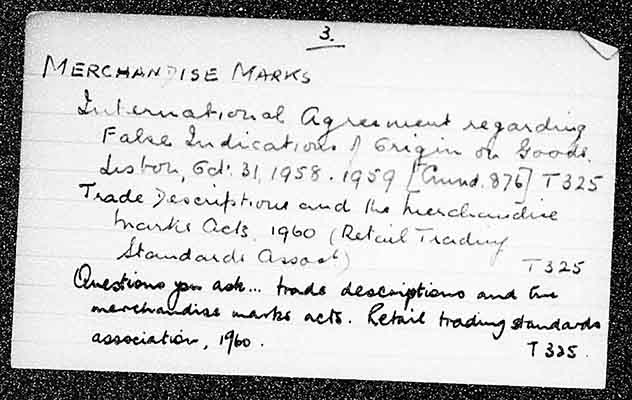 3.
MERCHANDISE MARKS
International Agreement regarding
False Indications of Origin on Goods.
Lisbon, Oct. 31, 1958. 1959 [Cmnd. 876] T 325
Trade Descriptions and the Merchandise
Marks Acts, 1960 (Retail Trading
Standards Assoct)
T 325
Questions you ask... trade descriptions and the
merchandise marks acts. Retail trading standards
association, 1960.
T 325.